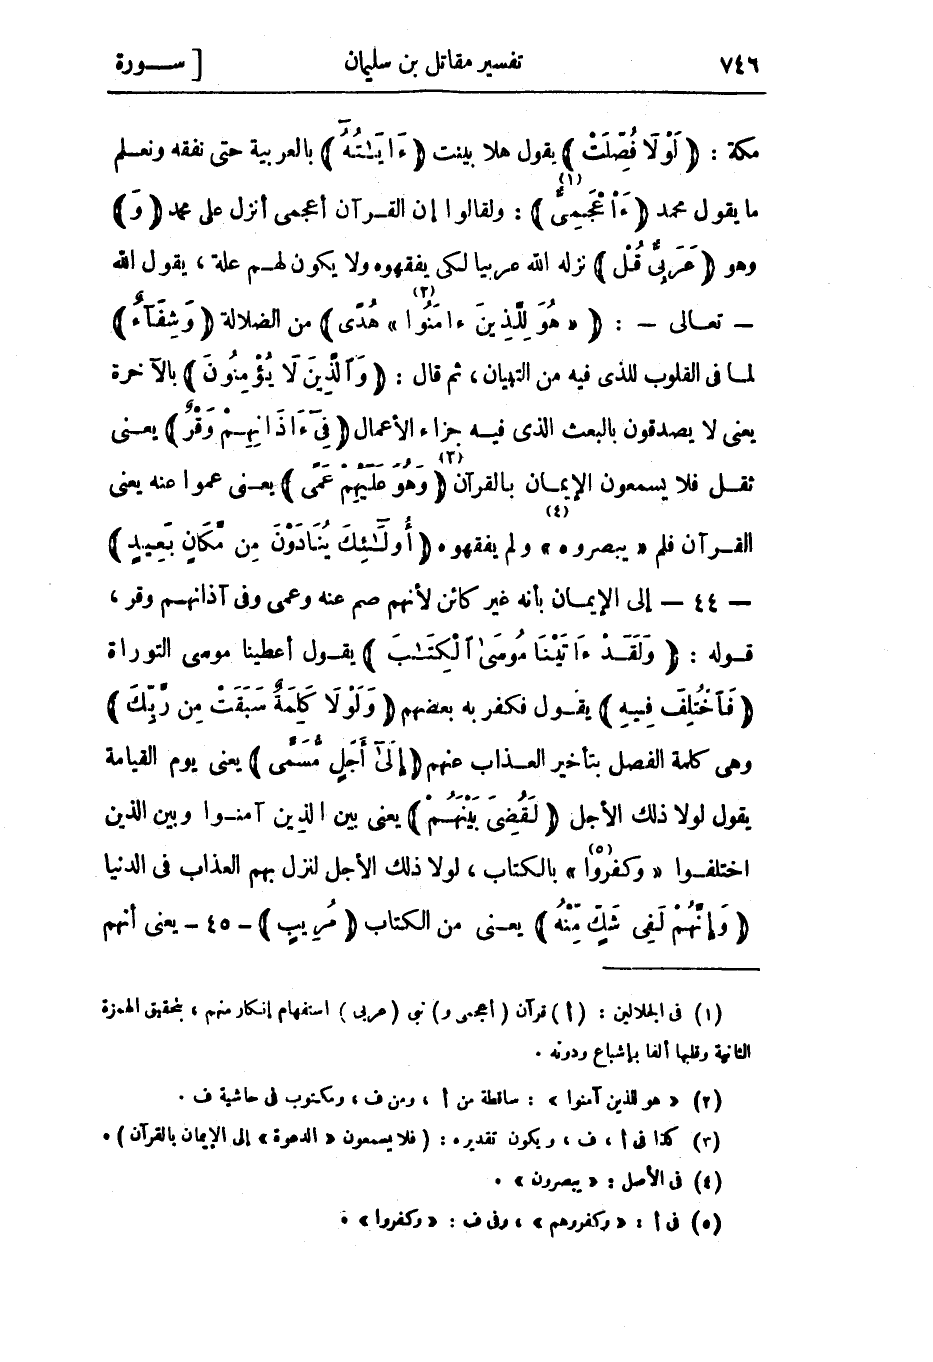 ٧٤٦ تفسير مقاتل بن سليمان [ ســورة
مكة : ( لَوْلَا فُصِّلَتْ ) يقول هلا بينت ( ءَايَـٰتُهُٓ ) بالعربية حتى نفقه ونعـلم
ما يقول محمد ( ءَا۬عْجَمِىٌّ )(١) : ولقالوا إن القـرآن أعجمى أنزل على محمد ( وَ )
وهو ( عَرَبِىٌّ قُلْ ) نزله الله عربيا لكى يفقهوه ولا يكون لهـم علة ، يقول الله
— تعـالى — : ( « هُوَ لِلَّذِينَ ءَامَنُوا »(٢) هُدًى ) من الضلالة ( وَشِفَآءٌ )
لمـا فى القلوب للذى فيه من التهيان ، ثم قال : ( وَٱلَّذِينَ لَا يُؤْمِنُونَ ) بالآخرة
يعنى لا يصدقون بالبعث الذى فيـه جزاء الأعمال ( فِىٓ ءَاذَانِهِـمْ وَقْرٌ ) يعـنى
ثقـل فلا يسمعون الإيمـان بالقرآن(٣) ( وَهُوَ عَلَيْهِمْ عَمًى ) يعـنى عموا عنه يعنى
القـرآن فلم « يبصروه »(٤) ولم يفقهوه ( أُولَـٰٓئِكَ يُنَادَوْنَ مِن مَّكَانٍ بَعِيـدٍ )
— ٤٤ — إلى الإيمـان بأنه غير كائن لأنهم صم عنه وعمى وفى آذانهـم وقر ،
قـوله : ( وَلَقَـدْ ءَاتَيْنَا مُوسَى ٱلْكِتَـٰبَ ) يقـول أعطينا موسى التوراة
( فَٱخْتُلِفَ فِيهِ ) يقـول فكفر به بعضهم ( وَلَوْلَا كَلِمَةٌ سَبَقَتْ مِن رَّبِّكَ )
وهى كلمة الفصل بتأخير العـذاب عنهم ( إِلَىٰٓ أَجَلٍ مُّسَمًّى ) يعنى يوم القيامة
يقول لولا ذلك الأجل ( لَقُضِىَ بَيْنَهُـمْ ) يعنى بين الذين آمنـوا وبين الذين
اختلفـوا « وكفروا »(٥) بالكتاب ، لولا ذلك الأجل لنزل بهم العذاب فى الدنيا
( وَإِنَّهُمْ لَفِى شَكٍّ مِّنْهُ ) يعـنى من الكتاب ( مُرِيبٍ ) – ٤٥ – يعنى أنهم
(١) فى الجلالين : ( أ ) قرآن ( أعجمى و ) نبى ( عربى ) استفهام إنكار منهم ، بتحقيق الهمزة
الثانية وقلبها ألفا بإشباع ودونه .
(٢) « هو للذين آمنوا » : ساقطة من أ ، ومن ف ، ومكتوب فى حاشية ف .
(٣) كذا فى أ ، ف ، ويكون تقديره : ( فلا يسمعون « الدعوة » إلى الإيمان بالقرآن ) .
(٤) فى الأصل : « يبصرون » .
(٥) فى أ : « وكفروهم » ، وفى ف : « وكفروا » .